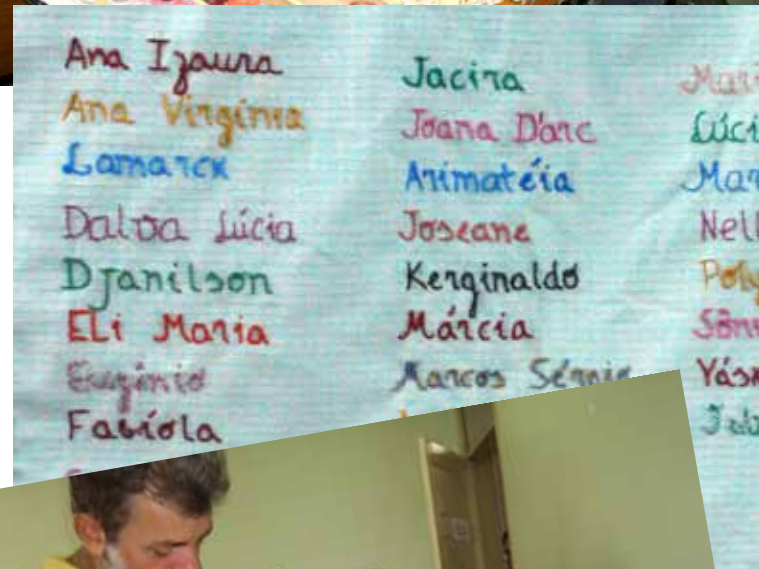 Ana Izaura
Ana Virgínia
Lamarcx
Dalva Lúcia
Djanilson
ELi Maria
Eugênio
Fabíola
Jacira
Joana D'arc
Arimatéia
Joseane
Kerginaldo
Márcia
Marcos Sérgio
Mari
Lúci
Mar
Nell
Poly